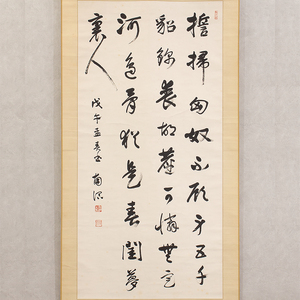 誓掃匈奴不顧身五千
貂錦喪胡塵可憐無定
河邊骨猶是春閨夢
裏人
戊午孟春